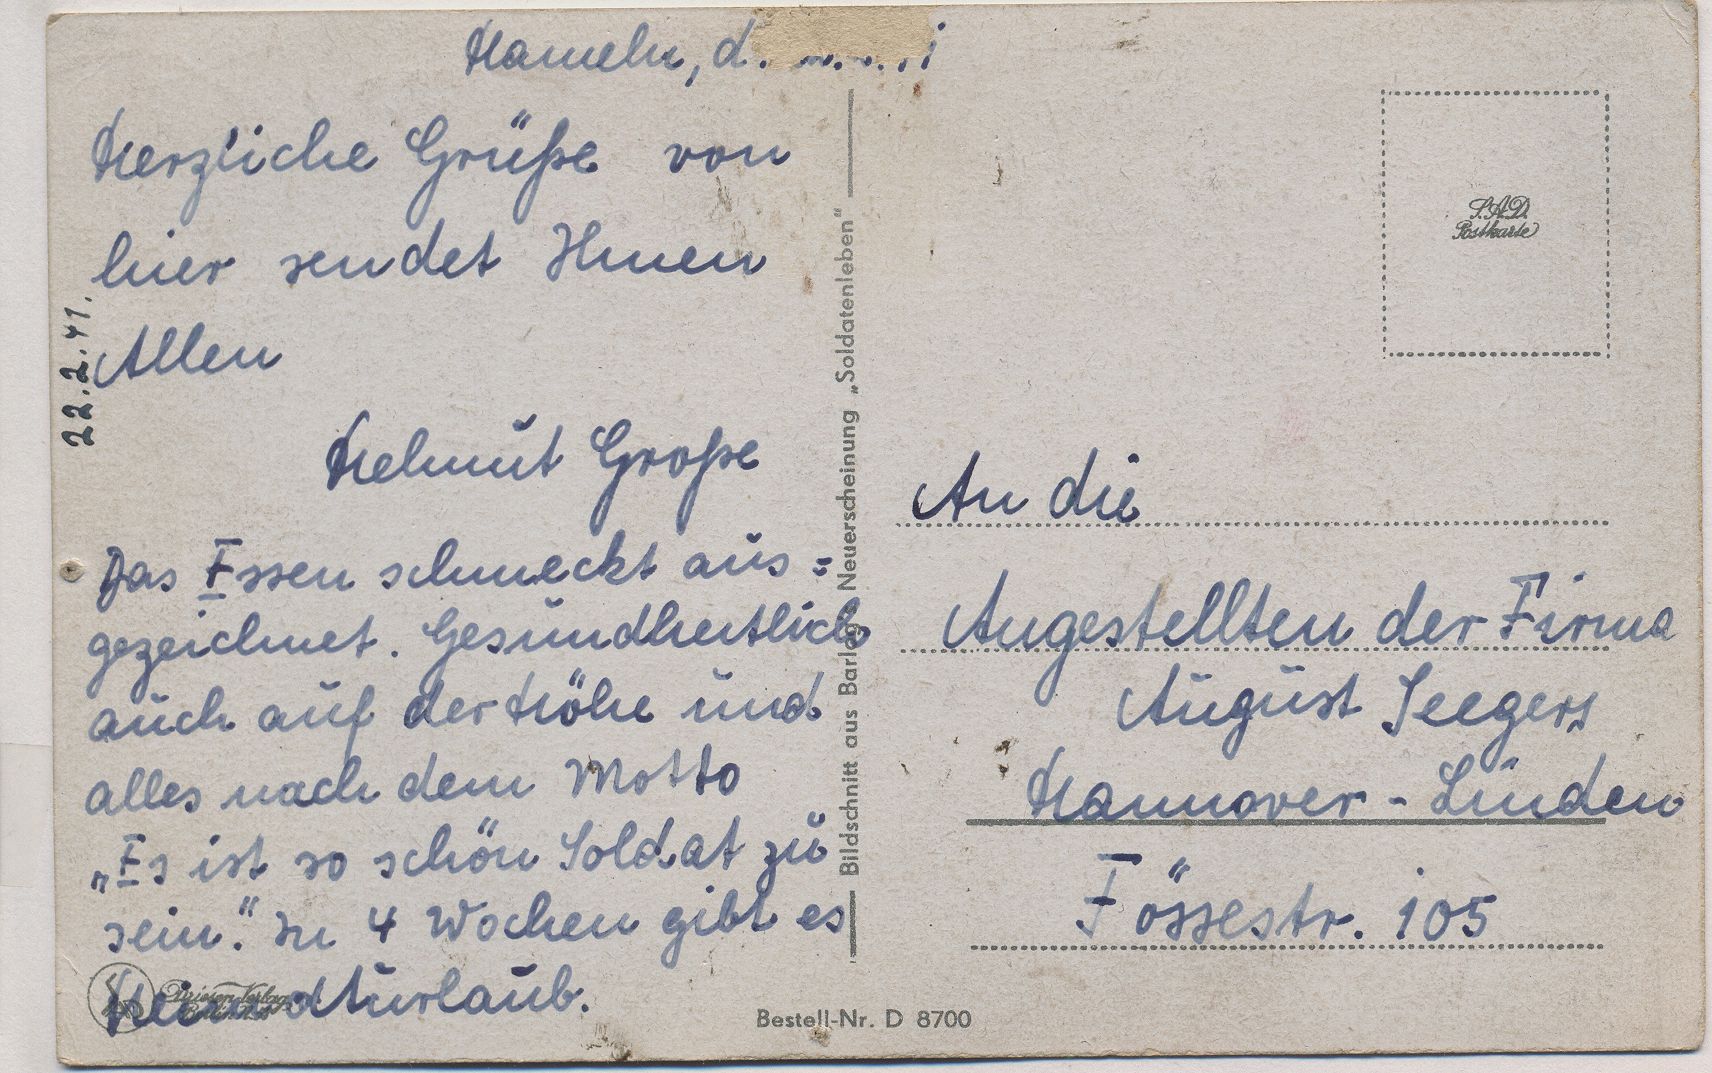 Hameln, d.
Herzliche Grüße von
hier sendet Ihnen
Allen
Helmut Große
Das Essen schmeckt aus=
gezeichnet. Gesundheitlich
auch auf der Höhe und
alles nach dem Motto
„Es ist so schön Soldat zu
sein." In 4 Wochen gibt es
Heimaturlaub.
22.2.41.
Bildschnitt aus Barlogs Neuerscheinung „Soldatenleben"
S.A.D.
Postkarte
An die
Angestellten der Firma
August Seegers
Hannover-Linden
Fössestr. 105
Driesen-Verlag
Bestell-Nr. D 8700